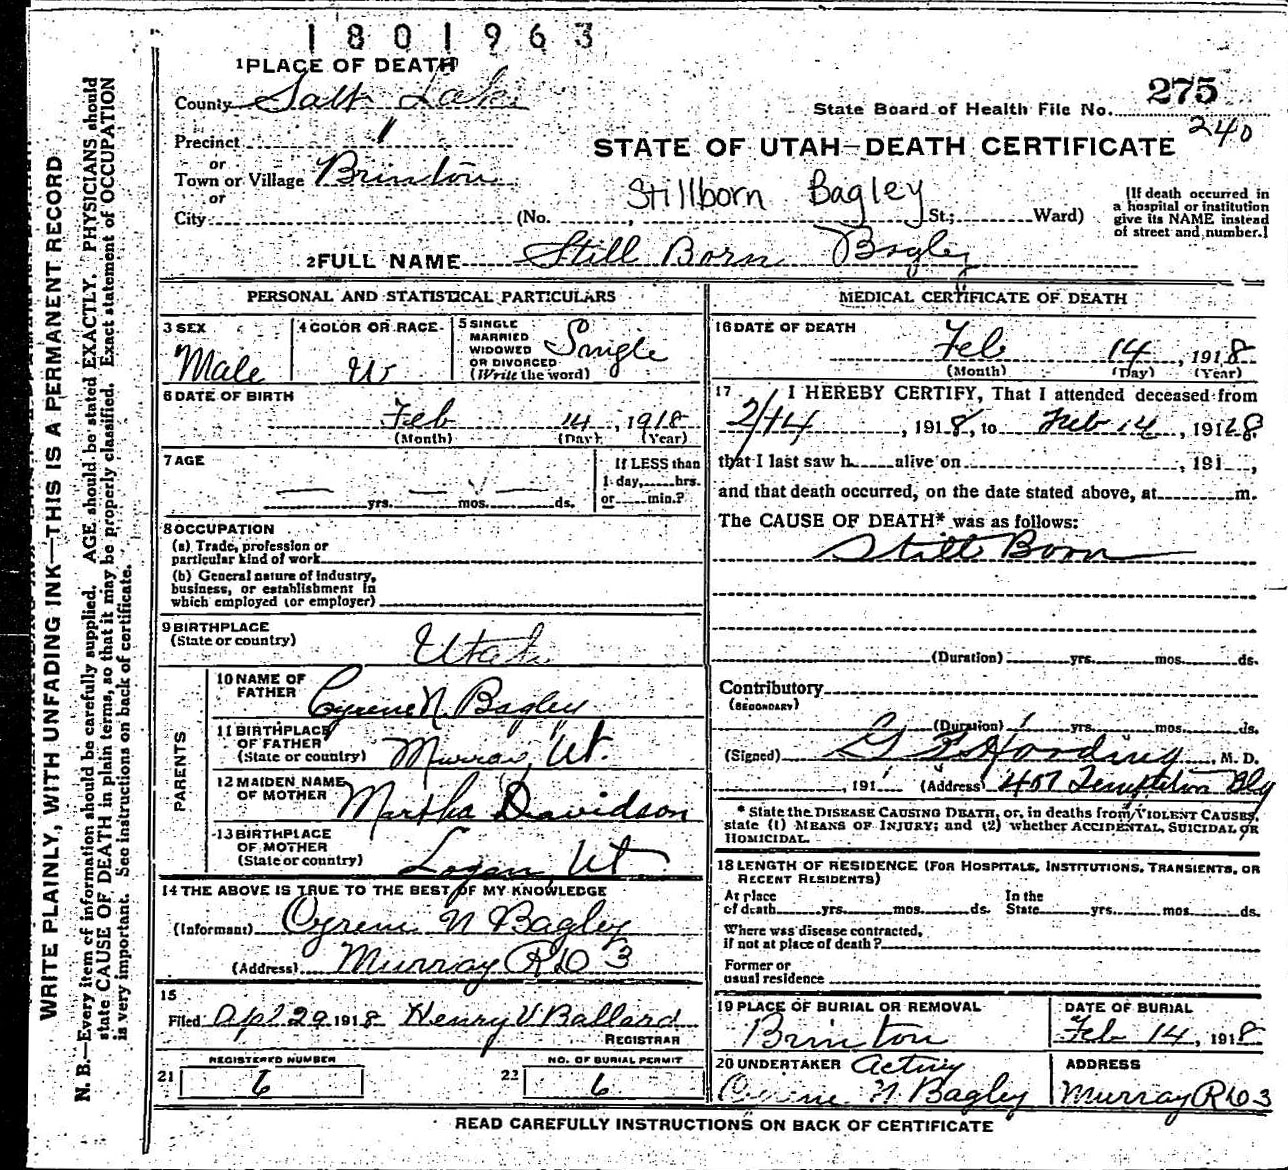 1801963
1 PLACE OF DEATH
County Salt Lake
State Board of Health File No. 275
240
Precinct 1
or
Town or Village Brinton
STATE OF UTAH—DEATH CERTIFICATE
or
Stillborn Bagley
City (No. , St.; Ward)
[If death occurred in
a hospital or institution
give its NAME instead
of street and number.]
2 FULL NAME Still Born Bagley
PERSONAL AND STATISTICAL PARTICULARS
3 SEX
Male
4 COLOR OR RACE
W
5 SINGLE
MARRIED
WIDOWED
OR DIVORCED
(Write the word)
Single
6 DATE OF BIRTH
Feb 14, 1918
(Month) (Day) (Year)
7 AGE
yrs. mos. ds.
If LESS than
1 day, hrs.
or min.?
8 OCCUPATION
(a) Trade, profession or
particular kind of work
(b) General nature of Industry,
business, or establishment in
which employed (or employer)
9 BIRTHPLACE
(State or country)
Utah
PARENTS
10 NAME OF
FATHER
Cyrene N. Bagley
11 BIRTHPLACE
OF FATHER
(State or country)
Murray, Ut.
12 MAIDEN NAME
OF MOTHER
Martha Davidson
13 BIRTHPLACE
OF MOTHER
(State or country)
Logan, Ut
14 THE ABOVE IS TRUE TO THE BEST OF MY KNOWLEDGE
(Informant) Cyrene N Bagley
(Address) Murray R D 3
15
Filed Apl 29 1918 Henry V Ballard
REGISTRAR
REGISTERED NUMBER
21 6
NO. OF BURIAL PERMIT
22 6
MEDICAL CERTIFICATE OF DEATH
16 DATE OF DEATH
Feb 14, 1918
(Month) (Day) (Year)
17 I HEREBY CERTIFY, That I attended deceased from
2/14, 1918, to Feb 14, 1918
that I last saw h alive on , 191 ,
and that death occurred, on the date stated above, at m.
The CAUSE OF DEATH* was as follows:
Still Born
(Duration) yrs. mos. ds.
Contributory
(SECONDARY)
(Duration) yrs. mos. ds.
(Signed) Harding, M. D.
, 191 (Address) 407 Templeton Bldg
* State the DISEASE CAUSING DEATH, or, in deaths from VIOLENT CAUSES,
state (1) MEANS OF INJURY; and (2) whether ACCIDENTAL, SUICIDAL OR
HOMICIDAL.
18 LENGTH OF RESIDENCE (FOR HOSPITALS, INSTITUTIONS, TRANSIENTS, OR
RECENT RESIDENTS)
At place
of death yrs. mos. ds.
In the
State yrs. mos. ds.
Where was disease contracted,
if not at place of death?
Former or
usual residence
19 PLACE OF BURIAL OR REMOVAL
Brinton
DATE OF BURIAL
Feb 14, 1918
20 UNDERTAKER Acting
Cyrene N Bagley
ADDRESS
Murray R D 3
READ CAREFULLY INSTRUCTIONS ON BACK OF CERTIFICATE
WRITE PLAINLY, WITH UNFADING INK—THIS IS A PERMANENT RECORD
N. B.—Every item of information should be carefully supplied. AGE should be stated EXACTLY. PHYSICIANS should
state CAUSE OF DEATH in plain terms, so that it may be properly classified. Exact statement of OCCUPATION
is very important. See instructions on back of certificate.